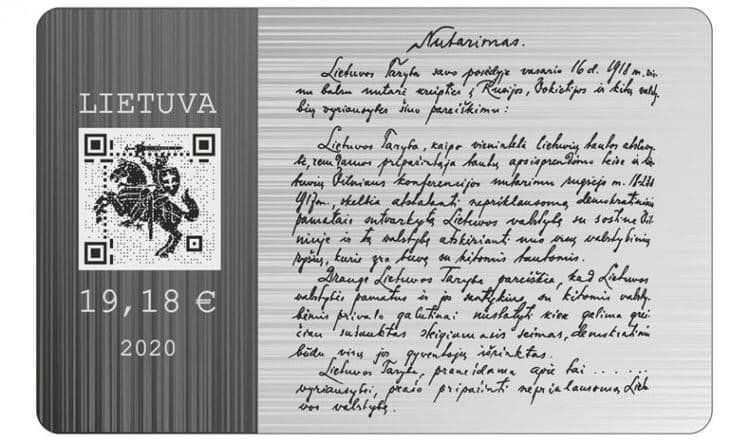 LIETUVA
19,18 €
2020
Nutarimas.
Lietuvos Taryba savo posėdyje vasario 16 d. 1918 m. vie-
nu balsu nutarė kreiptis į Rusijos, Vokietijos ir kitų valsty-
bių vyriausybes šiuo pareiškimu:
Lietuvos Taryba, kaipo vienintelė lietuvių tautos atstovy-
bė, remdamos pripažintąja tautų apsisprendimo teise ir lie-
tuvių Vilniaus konferencijos nutarimu rugsėjo m. 18-23 d.
1917 m., skelbia atstatanti nepriklausomą demokratiniais
pamatais sutvarkytą Lietuvos valstybę su sostine Vil-
niuje ir tą valstybę atskirianti nuo visų valstybinių
ryšių, kurie yra buvę su kitomis tautomis.
Drauge Lietuvos Taryba pareiškia, kad Lietuvos
valstybės pamatus ir jos santykius su kitomis valsty-
bėmis privalo galutinai nustatyti kiek galima grei-
čiau sušauktas steigiamasis seimas, demokratiniu
būdu visų jos gyventojų išrinktas.
Lietuvos Taryba, pranešdama apie tai . . . . . .
vyriausybei, prašo pripažinti nepriklausomą Lietu-
vos valstybę.